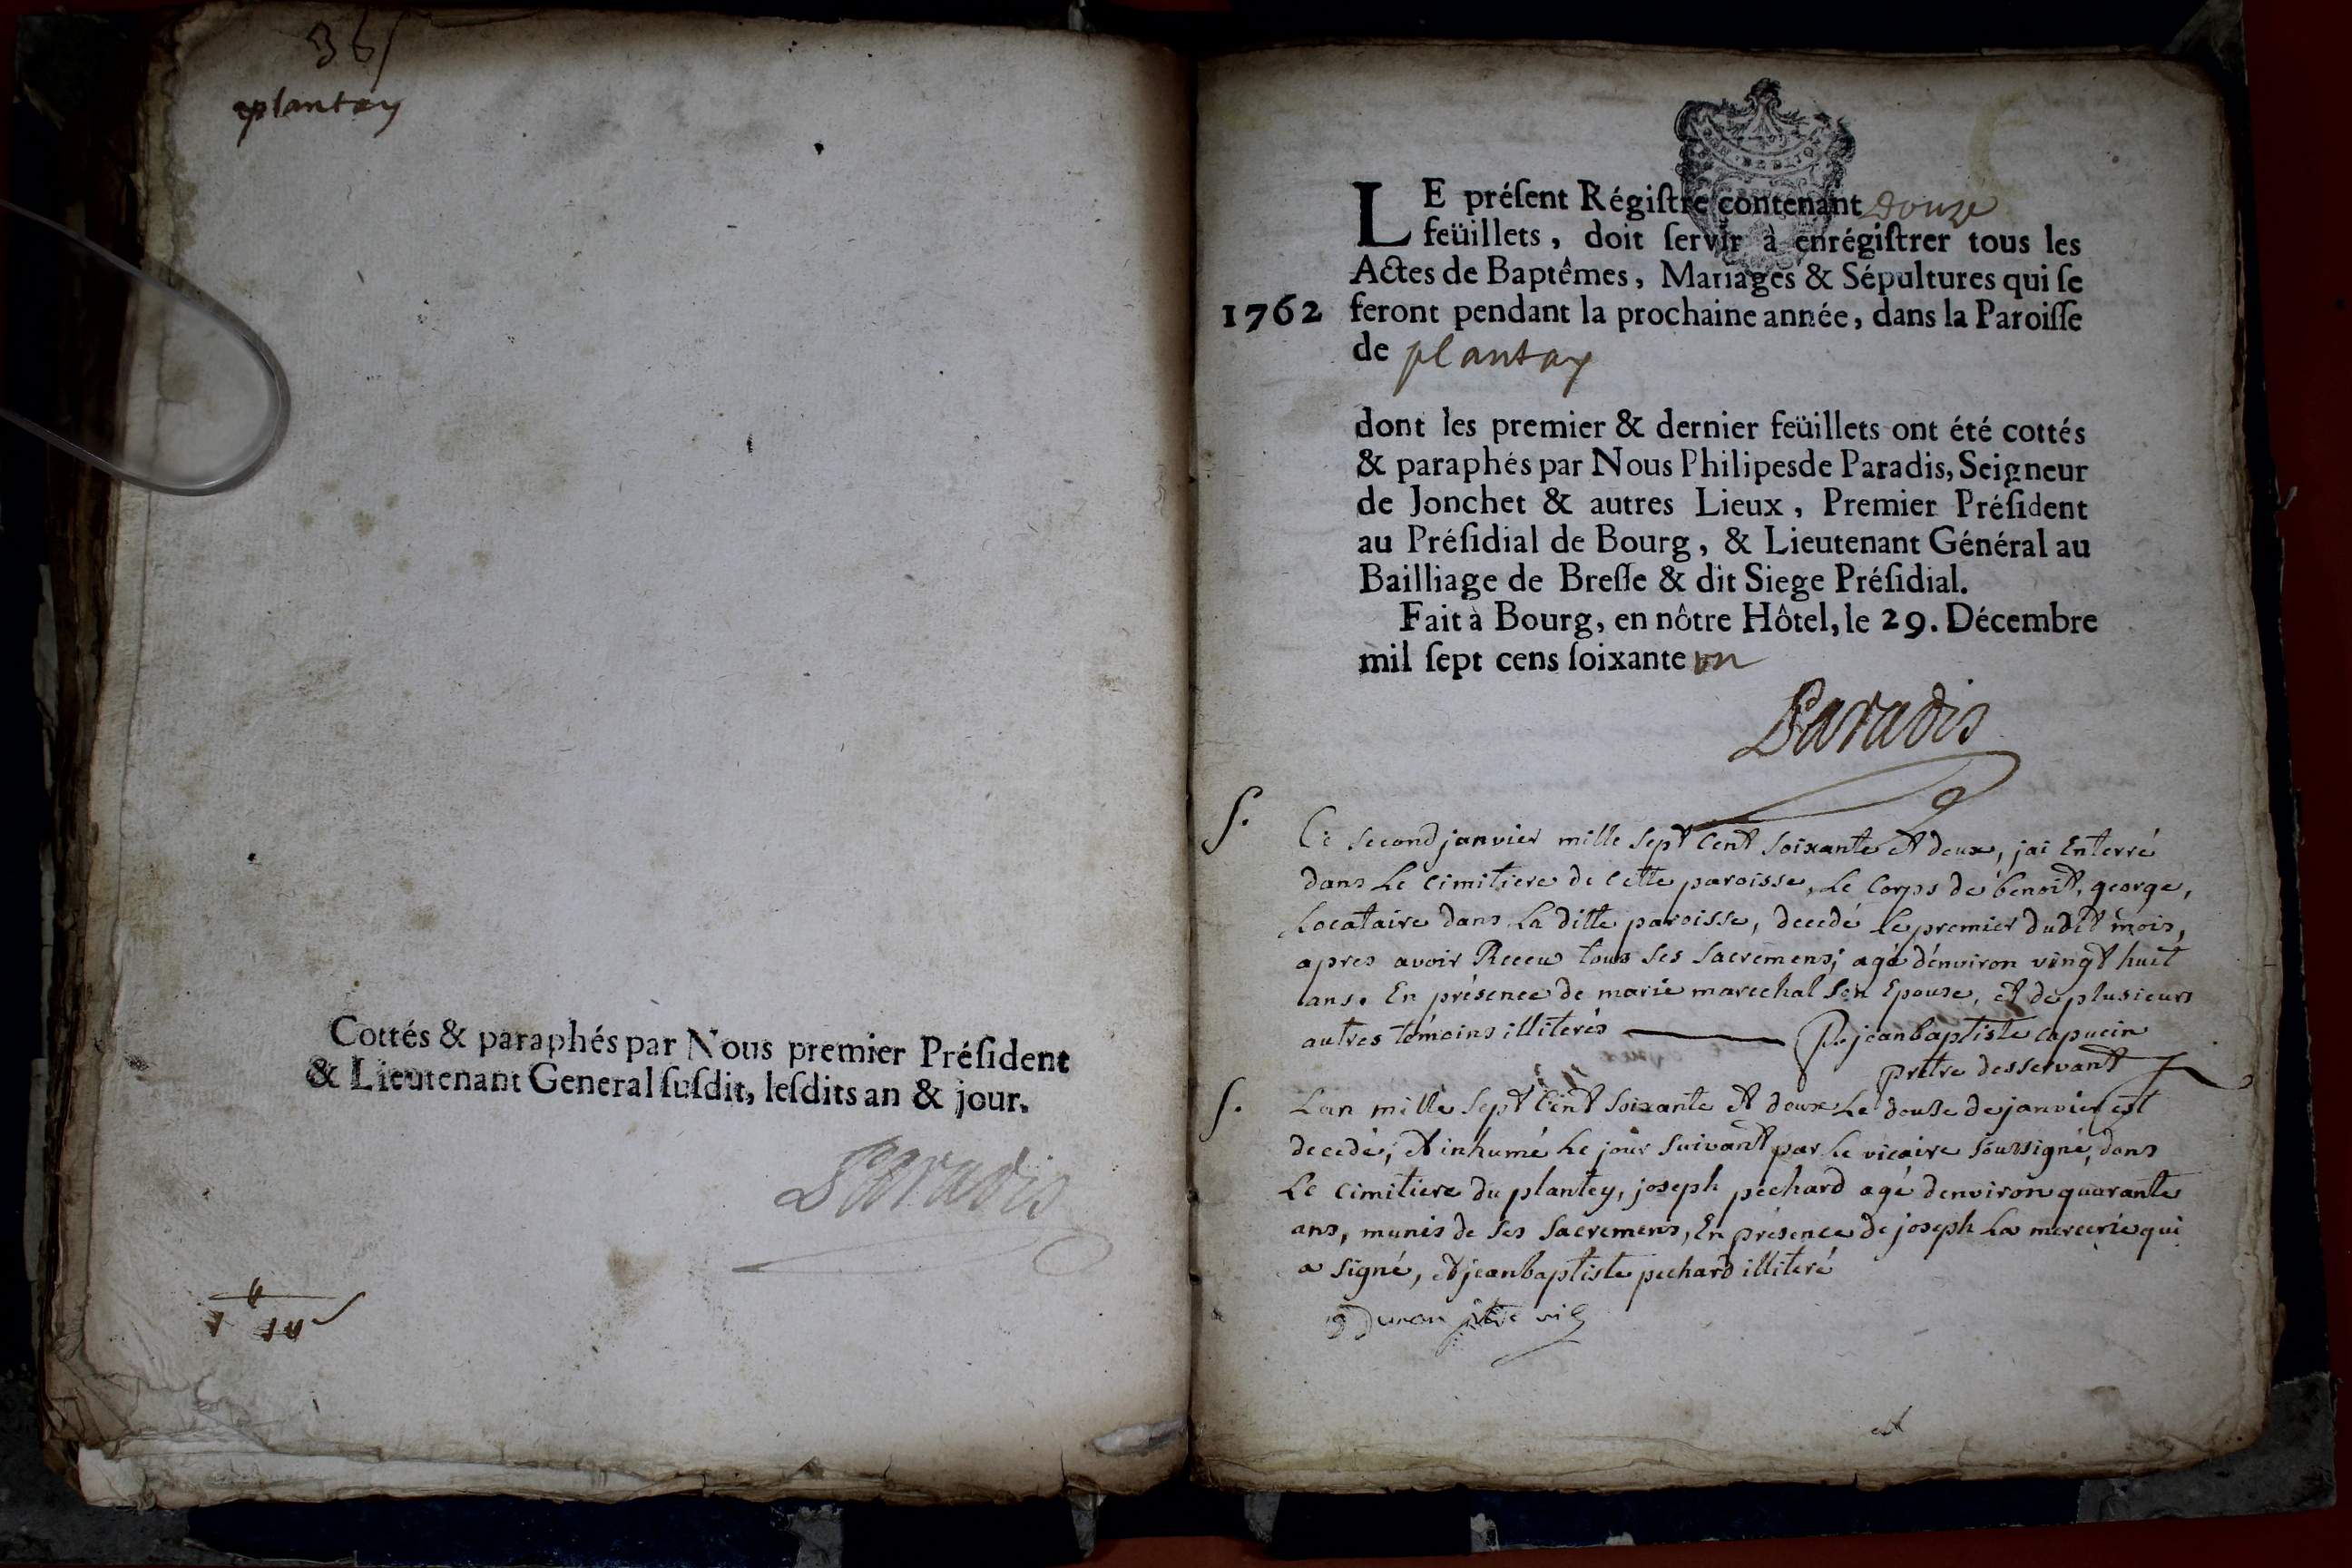 36
plantay
Cottés & paraphés par Nous premier Préſident
& Lieutenant General ſuſdit, leſdits an & jour.
Paradis
LE préſent Régiſtre contenant Douze
feüillets, doit ſervir à enrégiſtrer tous les
Actes de Baptêmes, Mariages & Sépultures qui ſe
1762 feront pendant la prochaine année, dans la Paroiſſe
de plantay
dont les premier & dernier feüillets ont été cottés
& paraphés par Nous Philipes de Paradis, Seigneur
de Jonchet & autres Lieux, Premier Préſident
au Préſidial de Bourg, & Lieutenant Général au
Bailliage de Breſſe & dit Siege Préſidial.
Fait à Bourg, en nôtre Hôtel, le 29. Décembre
mil ſept cens ſoixante un
Paradis
S. Ce second janvier mille sept cent soixante et deux, jai Enterré
dans Le cimitiere de cette paroisse, Le Corps de benoit, george,
Locataire dans La ditte paroisse, decedé le premier dudit mois,
apres avoir Receu tous ses sacremens; agé d'environ vingt huit
ans. En présence de marie marechal son Epouse, et de plusieurs
autres témoins illiterés P. jeanbaptiste capucin
prêtre desservant
S. Lan mille sept cent soixante et deux Le douse de janvier est
decedé, et inhumé Le jour suivant par Le vicaire soussigné, dans
Le cimitiere du plantey, joseph pechard agé denviron quarante
ans, munis de ses sacremens, En présence de joseph La mercerie qui
a signé, et jeanbaptiste pechard illiteré